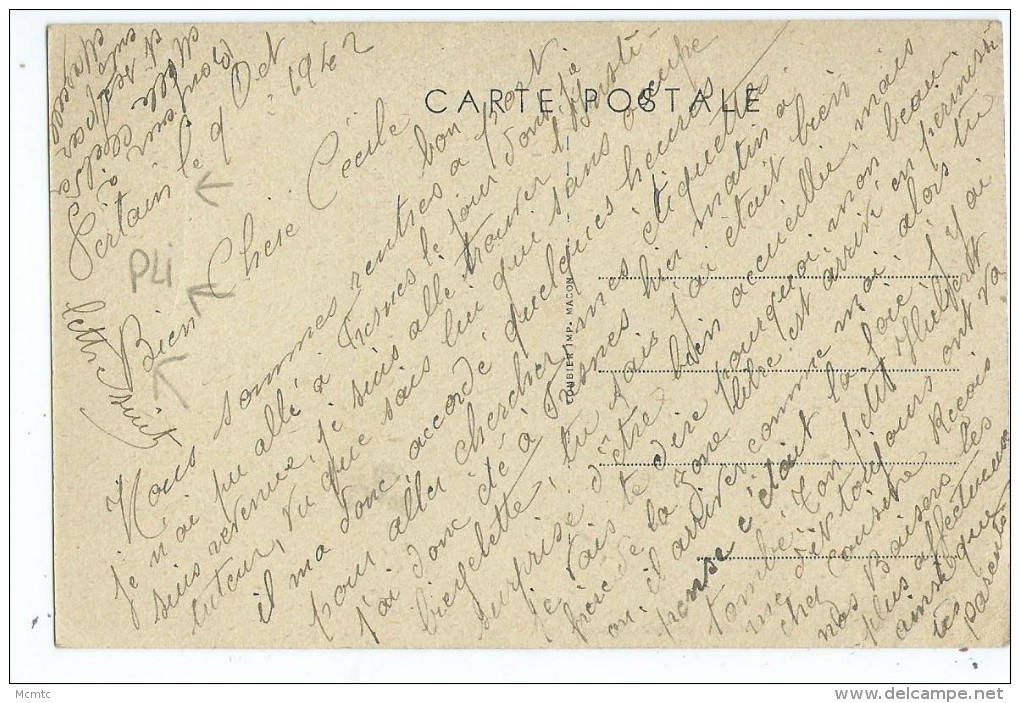 CARTE POSTALE
LOUBIER IMP. MACON
Pertain le 9 Oct 1942
Bien Chère Cécile
Nous sommes rentrés a bon port
je n'ai pu allé à Fresnes le jour dont je
suis revenue, je suis allé trouver l'Insti-
tuteur, vu que sais lui qui s'en occupe
il m'a donc accordé quelques heures
pour aller chercher mes étiquettes
j'ai donc été à Fresnes hier matin a
bicyclette, tu sais j'ai était bien
surprise d'être bien accueillie, mais
je vais te dire pourquoi, mon beau-
frère de la zone libre est arrivé en permission
on il arriver comme moi alors tu
pense c'était la foire, j'y ai
tombé. Ton petit Hubert
me dit toujours ont va
chez Cousine Reçois
nos Baisers les
plus affectueuse
ainsi que
tes parents
lettre suit
PLI
Mcmtc
www.delcampe.net